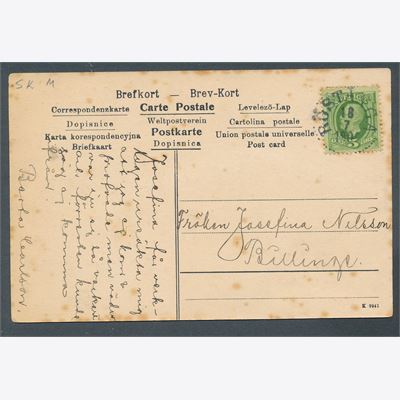 SK M
Brefkort – Brev-Kort
Correspondenzkarte
Carte Postale
Levelező-Lap
Dopisnice
Weltpostverein
Cartolina postale
Karta korespondencyjna
Postkarte
Union postale universelle
Briefkaart
Dopisnica
Post card
Josefina får verk-
ligen ursäkta mig
att jag ej kom
men vädret
var ju så
kunde
ej komma
Fröken Josefina Nilsson
Billinge.
K 9941